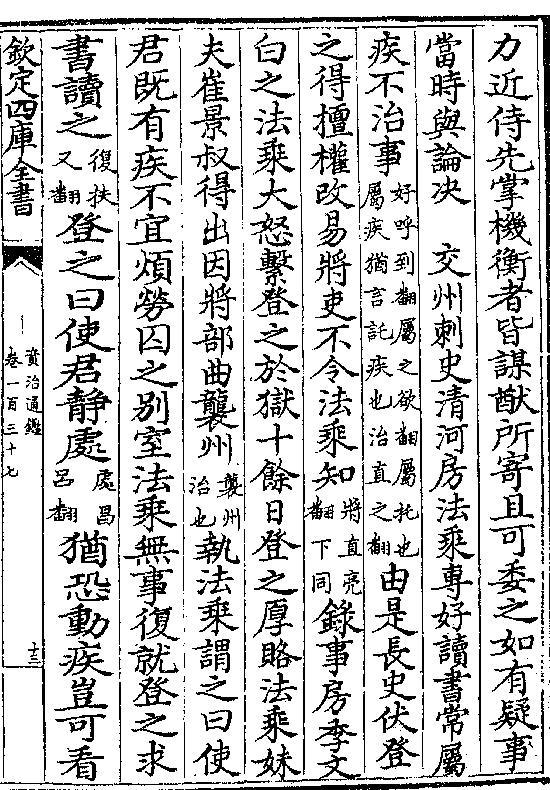 力近侍先掌機衡者皆謀猷所寄且可委之如有疑事
當時與論决　交州刺史清河房法乘專好讀書常屬
疾不治事好呼到翻屬之欲翻屬托也屬疾猶言託疾也治直之翻由是長史伏登
之得擅權改易將吏不令法乘知將直亮翻下同錄事房季文
白之法乘大怒繫登之於獄十餘日登之厚賂法乘妹
夫崔景叔得出因將部曲襲州襲州治也執法乘謂之曰使
君既有疾不宜煩勞囚之别室法乘無事復就登之求
書讀之復扶又翻登之曰使君静處處昌呂翻猶恐動疾豈可看
欽定四庫全書
資治通鑑
卷一百三十七
十三